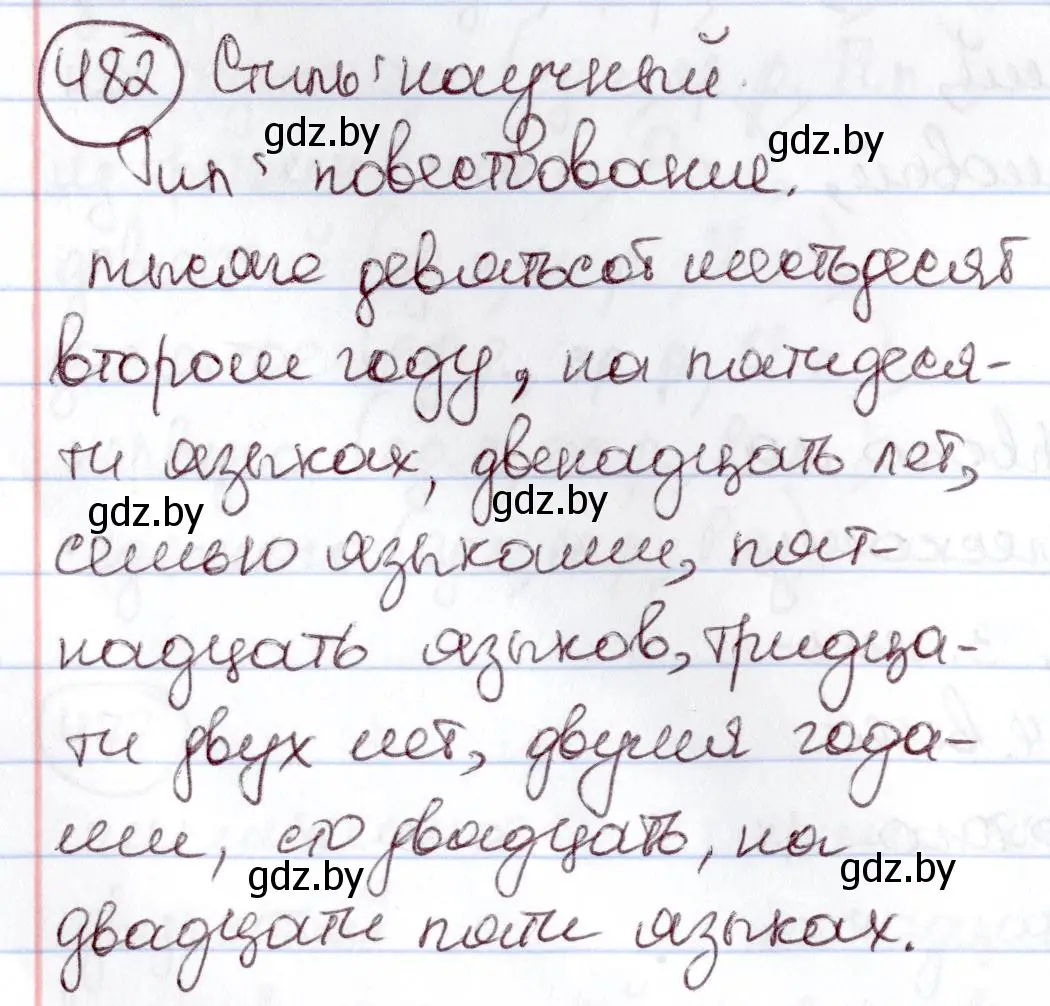 482 Стиль: научный.
gdz.by gdz.by
Тип: повествование.
тысяча девятьсот шестьдесят
втором году, на пятидеся-
ти языках, двенадцать лет,
gdz.by gdz.by
семью языками, пят-
надцать языков, тридца-
ти двух лет, двумя года-
ми, сто двадцать, на
gdz.by gdz.by
двадцати пяти языках.